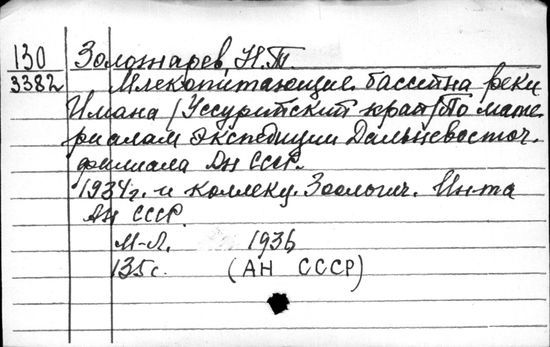 130 Золотарев, Н.Т.
3382 Млекопитающие бассейна реки
Имана /Уссурийский край/ По мате
риалам экспедиции Дальневосточ.
филиала АН СССР.
1934г. и коллекц. Зоологич. Ин-та
АН СССР.
М-Л. 1936
135с. (АН СССР)